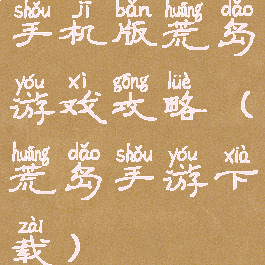 shǒu jī bǎn huāng dǎo
手机版荒岛
yóu xì gōng lüè
游戏攻略（
huāng dǎo shǒu yóu xià
荒岛手游下
zài
载）